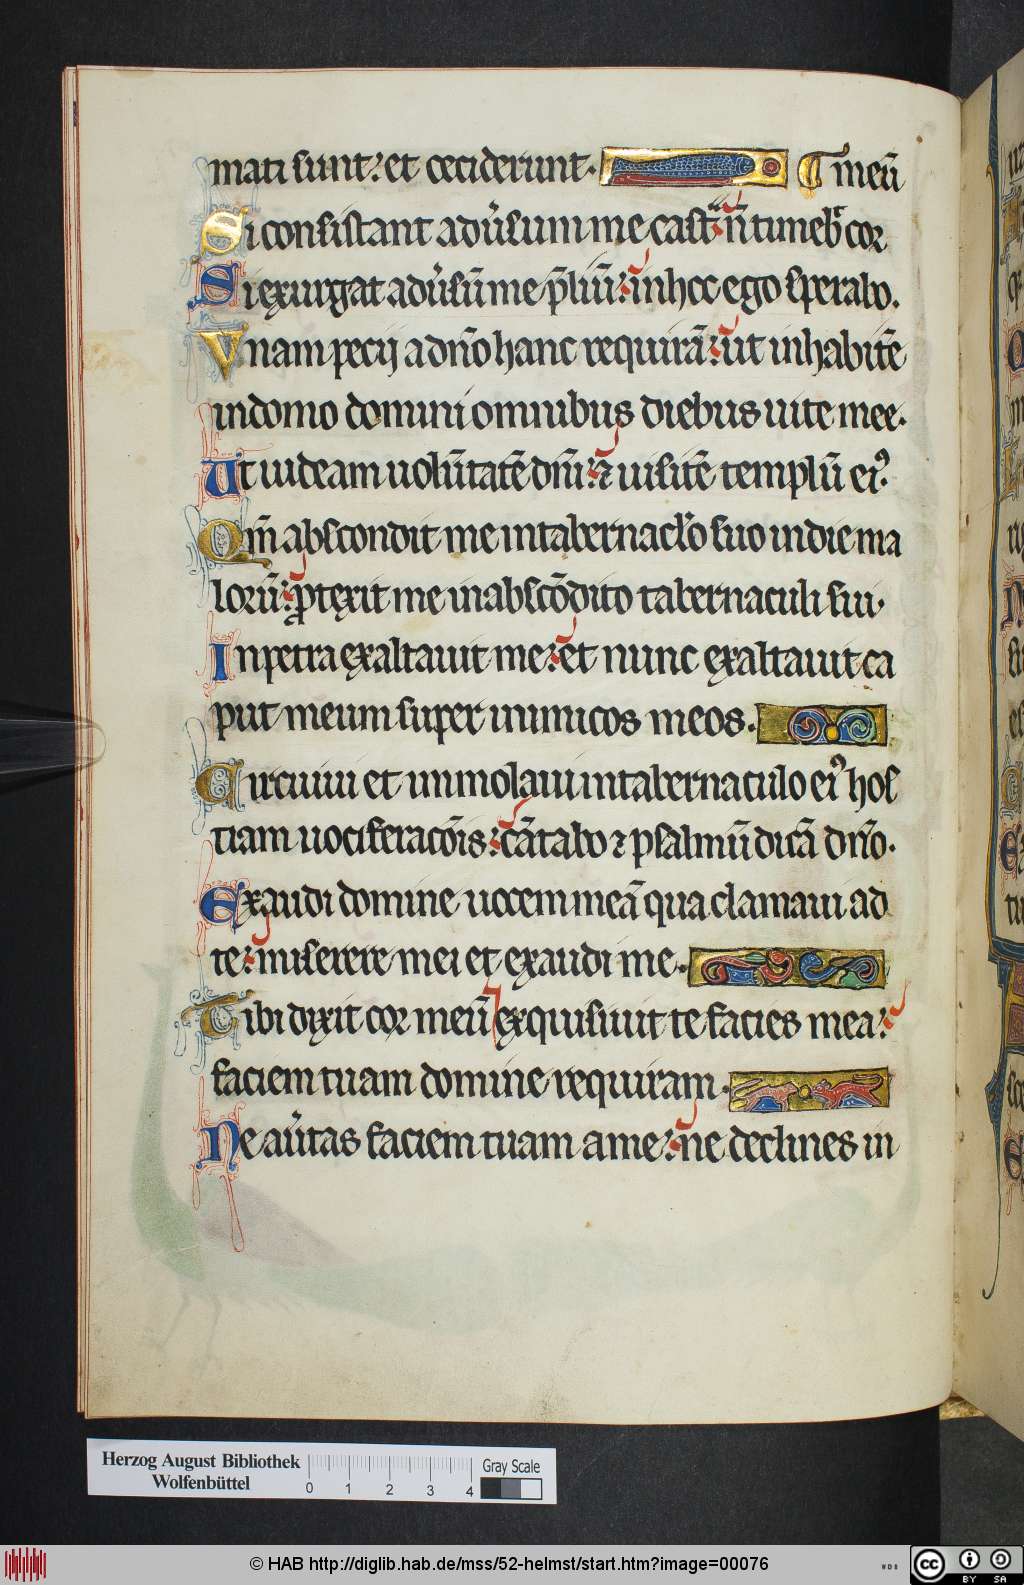 mati sunt: et ceciderunt. ⁊ meū
Si consistant adūsum me castᷓ: ñ timebᷓ cor
Si exurgat adūsū me p̄liū: in hoc ego sperabo.
Vnam pecij a dño hanc requirā: ut inhabitē
in domo domini omnibus diebus uite mee.
Ut uideam uolūtatē dñi: ⁊ uisitē templū eiꝰ.
Qm̄ abscondit me in tabernaclo suo in die ma
lorū: ꝓtexit me in abscōdito tabernaculi sui.
In petra exaltauit me: et nunc exaltauit ca
put meum super inimicos meos.
Circuiui et immolaui in tabernaculo eiꝰ hos
tiam uociferacōis: cātabo ⁊ psalmū dicā dño.
Exaudi domine uocem meā qua clamaui ad
te: miserere mei et exaudi me.
Tibi dixit cor meū exquisiuit te facies mea:
faciem tuam domine requiram.
Ne aūtas faciem tuam a me: ne declines in
Herzog August Bibliothek
Wolfenbüttel
0 1 2 3 4
Gray Scale
© HAB http://diglib.hab.de/mss/52-helmst/start.htm?image=00076
WDB
cc BY SA